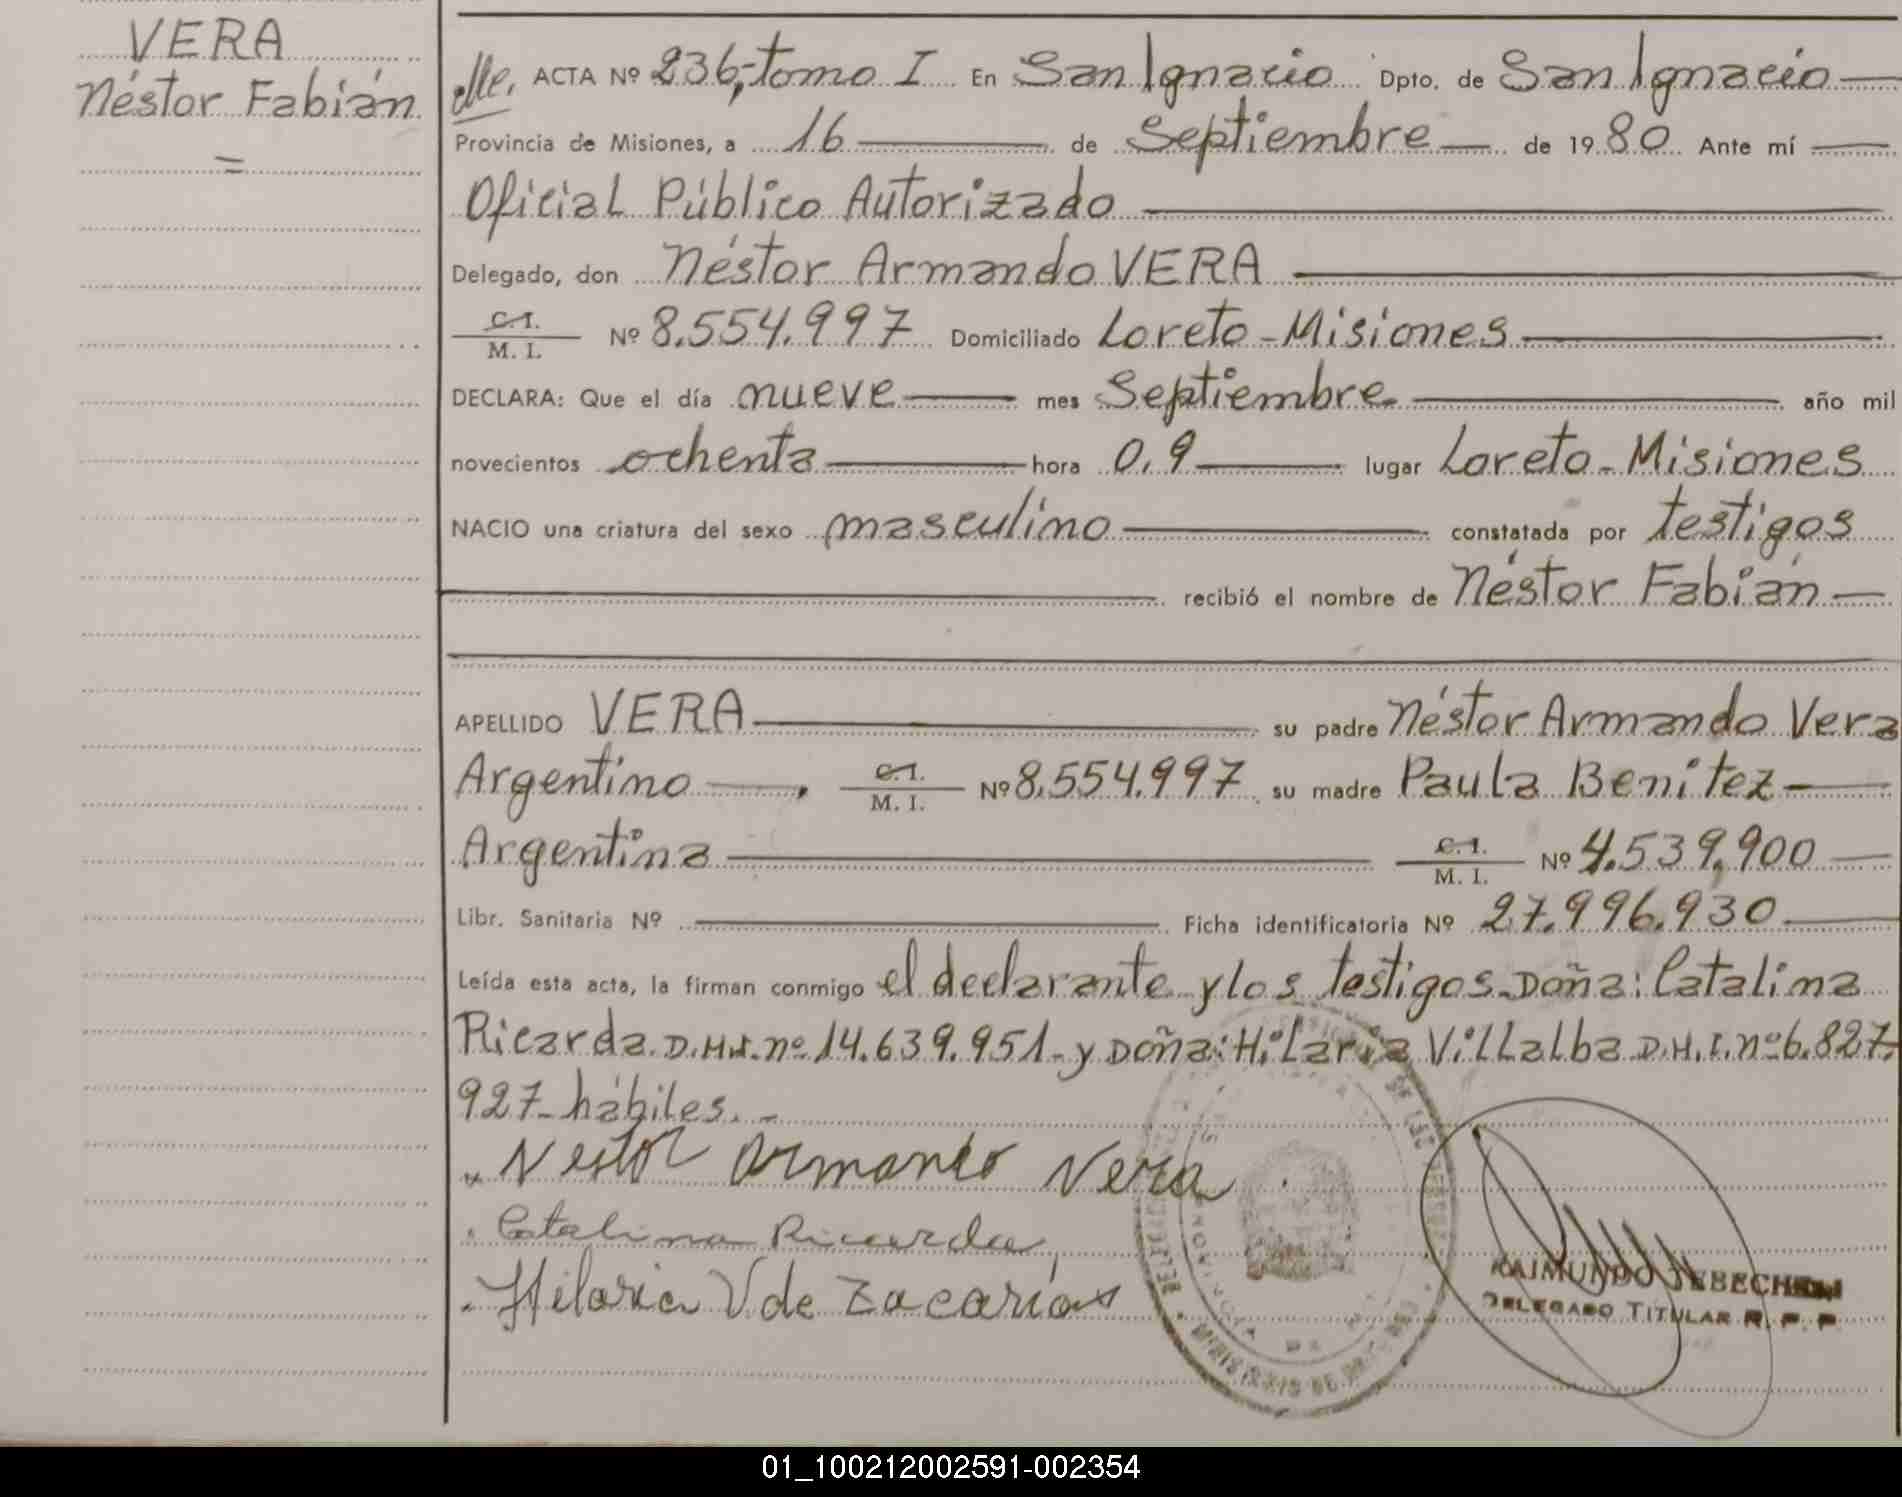 VERA
Néstor Fabián
=
ACTA Nº 236,-tomo I En San Ignacio Dpto. de San Ignacio
Provincia de Misiones, a 16 de Septiembre de 1980 Ante mí
Oficial Público Autorizado
Delegado, don Néstor Armando VERA
C.I. / M. I. Nº 8.554.997 Domiciliado Loreto-Misiones
DECLARA: Que el día nueve mes Septiembre año mil
novecientos ochenta hora 0,9 lugar Loreto-Misiones
NACIO una criatura del sexo masculino constatada por testigos
recibió el nombre de Néstor Fabián
APELLIDO VERA su padre Néstor Armando Vera
Argentino C.I. / M. I. Nº 8.554.997 su madre Paula Benítez
Argentina C.I. / M. I. Nº 4.539.900
Libr. Sanitaria Nº Ficha identificatoria Nº 27.996.930
Leída esta acta, la firman conmigo el declarante y los testigos-Doña: Catalina
Ricarda D.N.I. nº 14.639.951- y Doña: Hilaria Villalba D.N.I. nº 6.827.
927- hábiles.-
Nestor Armando Vera
Catalina Ricarda
Hilaria V de Zacarías
RAIMUNDO JEBECHEN
DELEGADO TITULAR R. P. P.
01_100212002591-002354